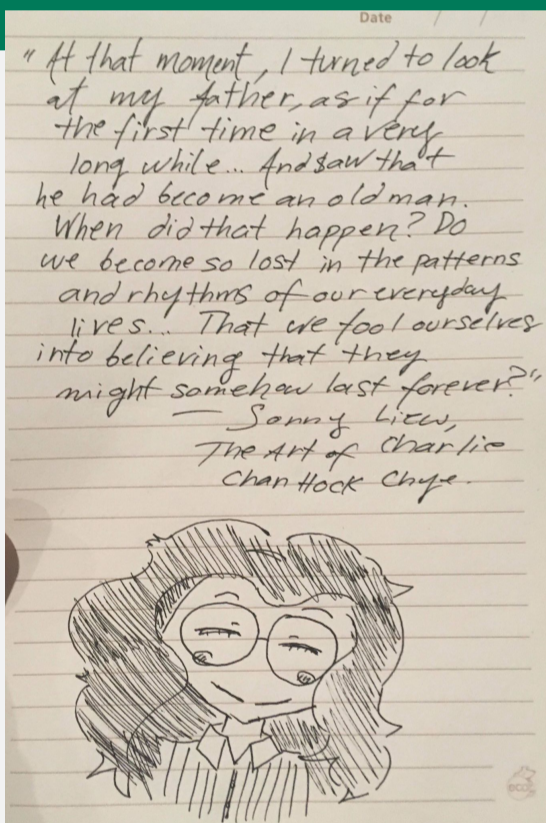 Date / /
"At that moment, I turned to look
at my father, as if for
the first time in a very
long while... And saw that
he had become an old man.
When did that happen? Do
we become so lost in the patterns
and rhythms of our everyday
lives... That we fool ourselves
into believing that they
might somehow last forever?"
— Sonny Liew,
The Art of Charlie
Chan Hock Chye.
eco